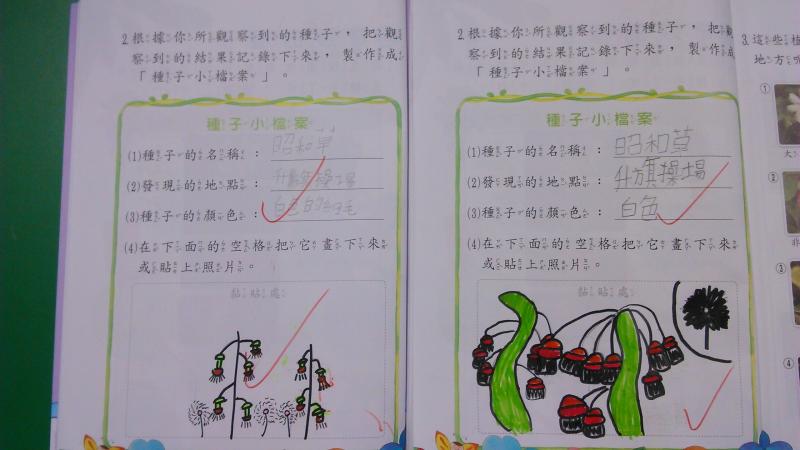 2.根據你所觀察到的種子，把觀
察到的結果記錄下來，製作成
「種子小檔案」。
種子小檔案
(1)種子的名稱：昭和草
(2)發現的地點：升旗操場
(3)種子的顏色：白色的毛
(4)在下面的空格把它畫下來
或貼上照片。
黏貼處
2.根據你所觀察到的種子，把觀
察到的結果記錄下來，製作成
「種子小檔案」。
種子小檔案
(1)種子的名稱：昭和草
(2)發現的地點：升旗操場
(3)種子的顏色：白色
(4)在下面的空格把它畫下來
或貼上照片。
黏貼處
3.這些植
地方呢
①
大
②
非
③
④